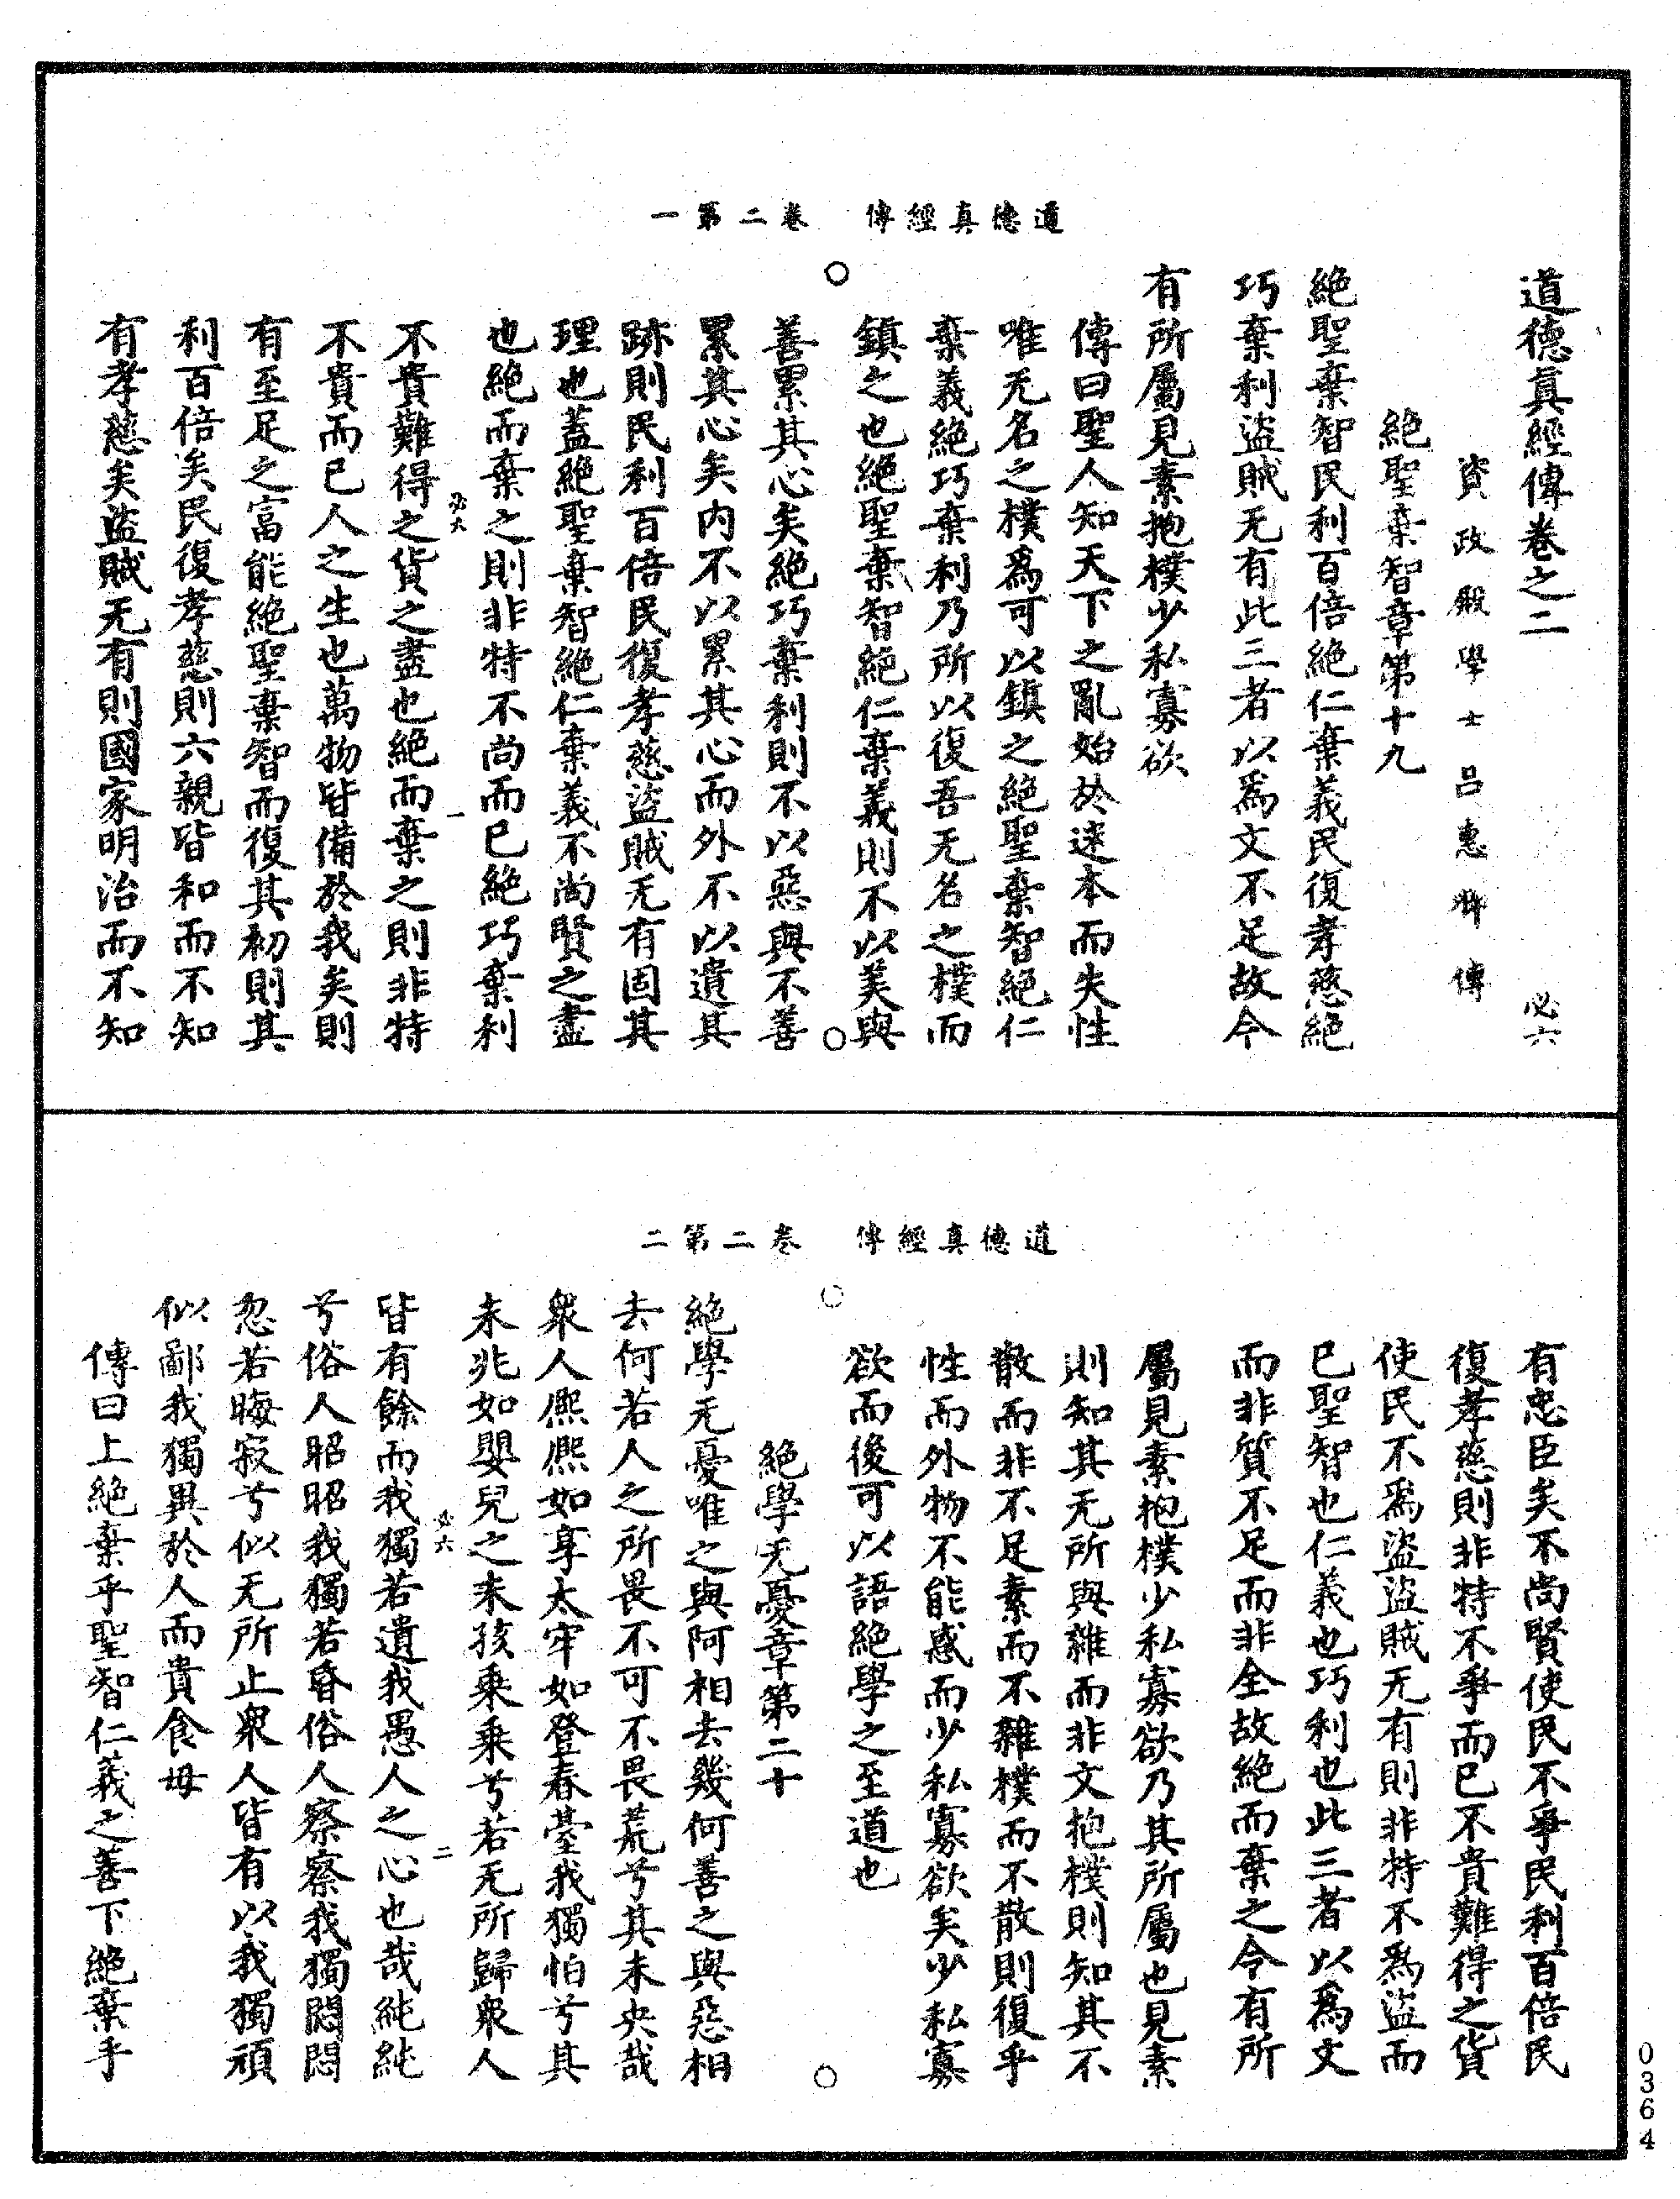 道德真經傳　卷二第一
道德眞經傳卷之二　必六
資政殿學士呂惠卿傳
絕聖棄智章第十九
絕聖棄智民利百倍絕仁棄義民復孝慈絕
巧棄利盜賊无有此三者以爲文不足故令
有所屬見素抱樸少私寡欲
傳曰聖人知天下之亂始於迷本而失性
唯无名之樸爲可以鎮之絕聖棄智絕仁
棄義絕巧棄利乃所以復吾无名之樸而
鎮之也絕聖棄智絕仁棄義則不以美與
善累其心矣絕巧棄利則不以惡與不善
累其心矣内不以累其心而外不以遺其
跡則民利百倍民復孝慈盜賊无有固其
理也蓋絕聖棄智絕仁棄義不尚賢之盡
也絕而棄之則非特不尚而已絕巧棄利
必六　一
不貴難得之貨之盡也絕而棄之則非特
不貴而已人之生也萬物皆備於我矣則
有至足之富能絕聖棄智而復其初則其
利百倍矣民復孝慈則六親皆和而不知
有孝慈矣盜賊无有則國家明治而不知
道德真經傳　卷二第二
有忠臣矣不尚賢使民不爭民利百倍民
復孝慈則非特不爭而已不貴難得之貨
使民不爲盜盜賊无有則非特不爲盜而
已聖智也仁義也巧利也此三者以爲文
而非質不足而非全故絕而棄之令有所
屬見素抱樸少私寡欲乃其所屬也見素
則知其无所與雜而非文抱樸則知其不
散而非不足素而不雜樸而不散則復乎
性而外物不能惑而少私寡欲矣少私寡
欲而後可以語絕學之至道也
絕學无憂章第二十
絕學无憂唯之與阿相去幾何善之與惡相
去何若人之所畏不可不畏荒兮其未央哉
衆人熈熈如享太牢如登春臺我獨怕兮其
未兆如嬰兒之未孩乗乗兮若无所歸衆人
必六　二
皆有餘而我獨若遺我愚人之心也哉純純
兮俗人昭昭我獨若昏俗人察察我獨悶悶
忽若晦寂兮似无所止衆人皆有以我獨頑
似鄙我獨異於人而貴食母
傳曰上絕棄乎聖智仁義之善下絕棄乎
0364